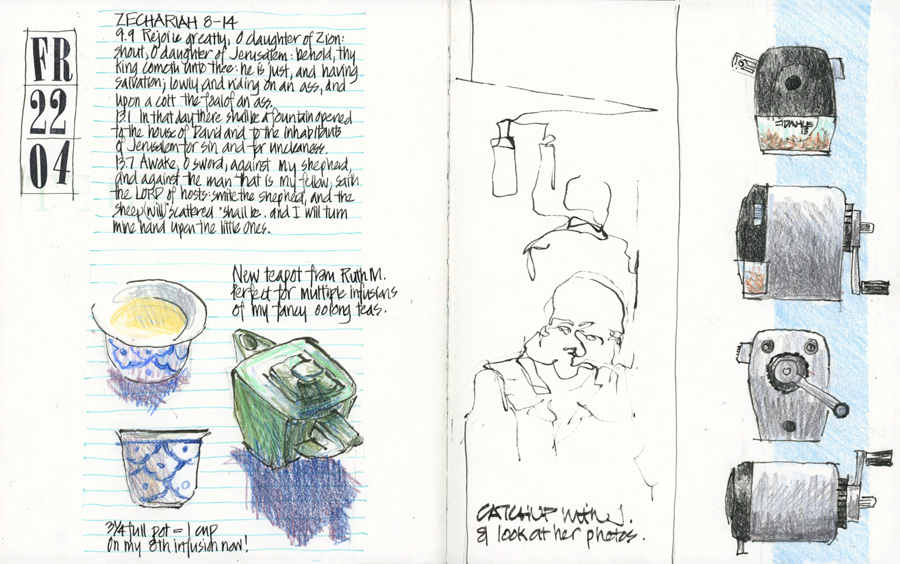 FR
22
04
ZECHARIAH 8-14
9.9 Rejoice greatly, O daughter of Zion:
shout, O daughter of Jerusalem: behold, thy
king cometh unto thee: he is just, and having
salvation; lowly, and riding on an ass, and
upon a colt the foal of an ass.
13.1 In that day there shall be a fountain opened
to the house of David and to the inhabitants
of Jerusalem for sin and for uncleaness.
13.7 Awake, O sword, against my shepherd,
and against the man that is my fellow, saith
the LORD of hosts: smite the shepherd, and the
sheep (will) scattered shall be. and I will turn
mine hand upon the little ones.
New teapot from Ruth M.
Perfect for multiple infusions
of my fancy oolong teas.
3/4 full pot = 1 cup
On my 8th infusion now!
CATCHUP with J.
& look at her photos.
DAHLE